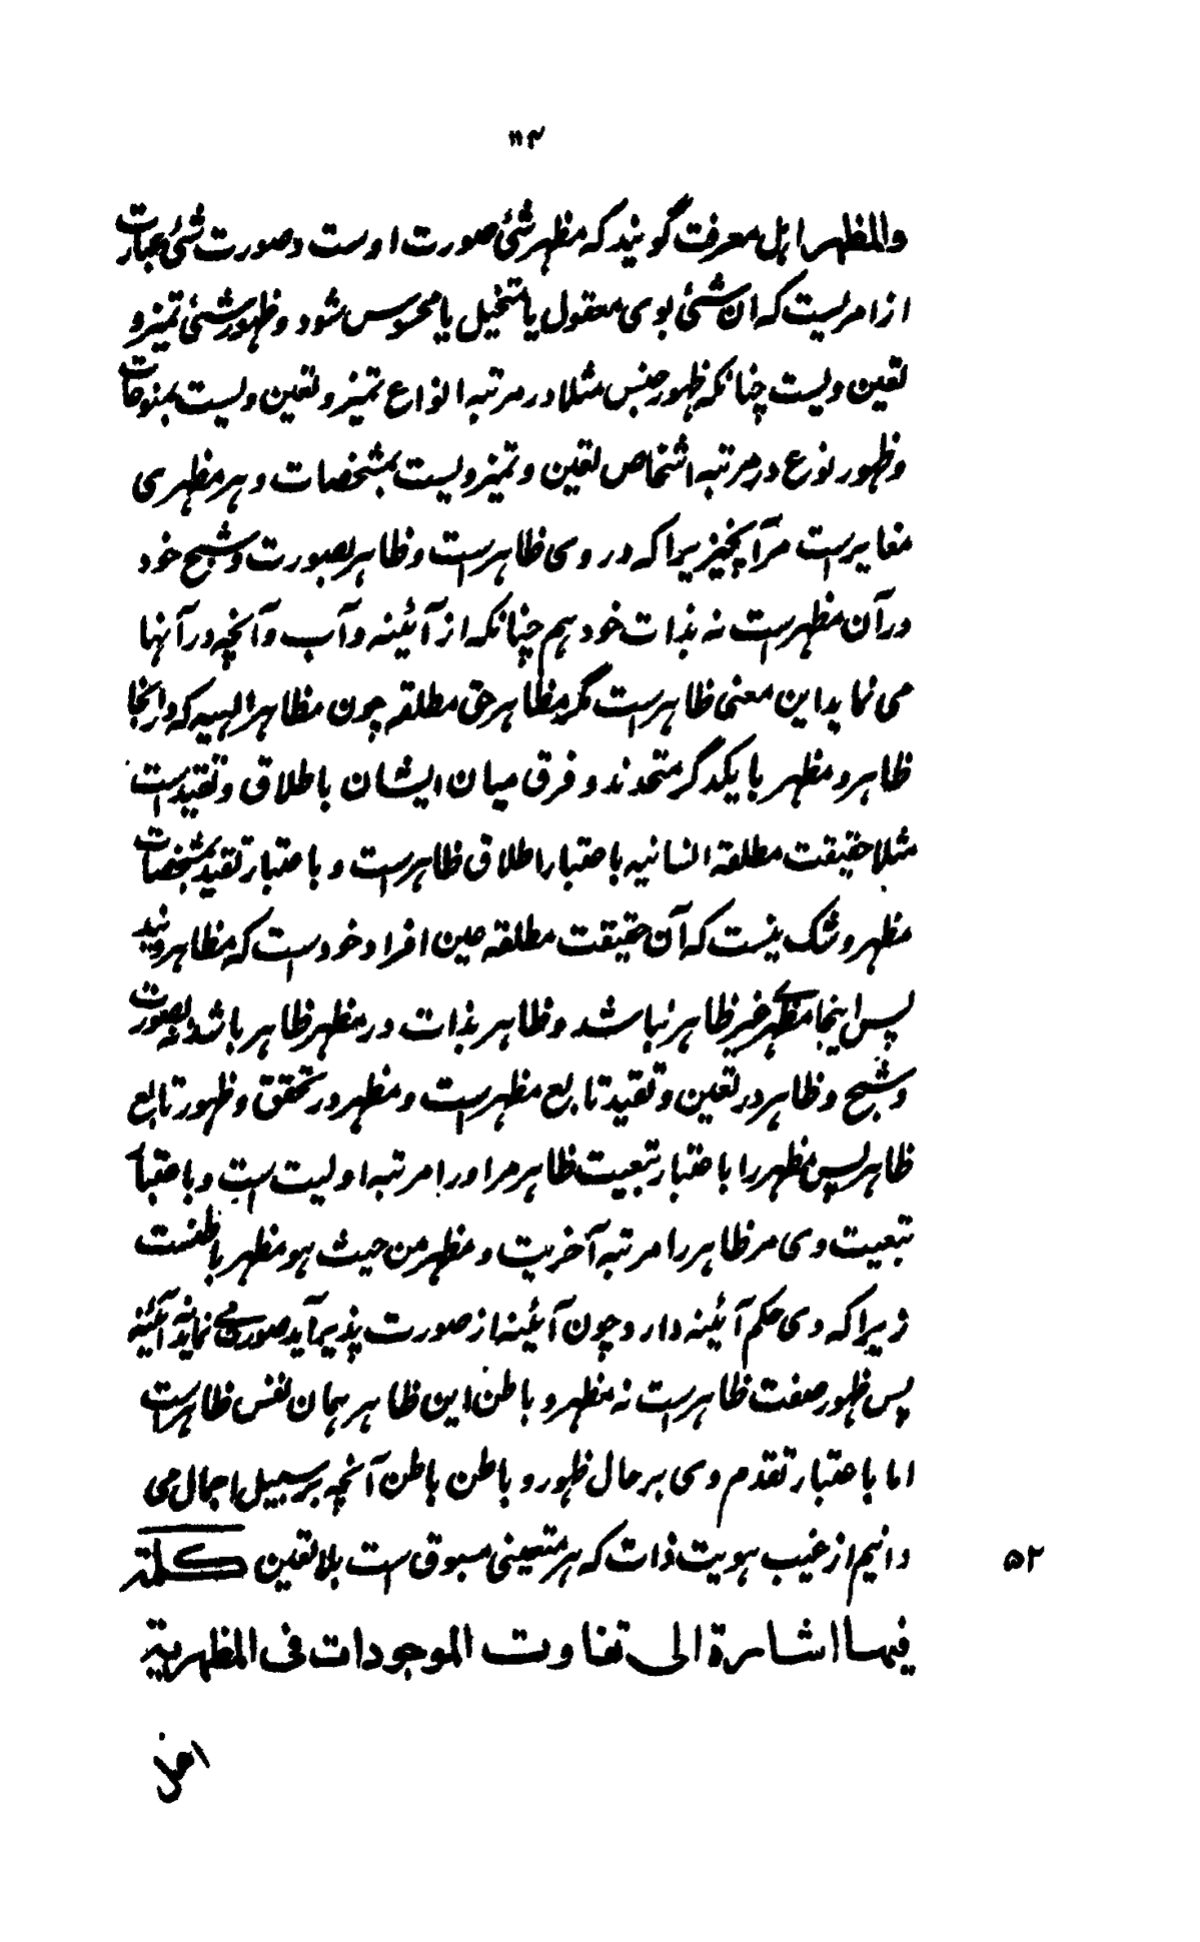 ۱۱۴
والمظهر اهل معرفت گویند که مظهر شئ صورت اوست و صورت شئ عبارت
از امریست که ان شئ بوی معقول یا متخیل یا محسوس شود و ظهور شئ تمیز و
تعین ویست چنانکه ظهور جنس مثلا در مرتبه انواع تمیز و تعین ویست بمنوعات
و ظهور نوع در مرتبه اشخاص تعین و تمیز ویست بمشخصات و هر مظهری
مغایرست مرآنچیز یرا که در وی ظاهرست و ظاهر بصورت و شبح خود
در آن مظهرست نه بذات خود هم چنانکه از آئینه و آب و آنچه در آنها
می نماید این معنی ظاهرست مگر مظاهر حق مطلقه چون مظاهر الهیه که در انجا
ظاهر و مظهر با یکدگر متحدند و فرق میان ایشان باطلاق و تقیدست
مثلا حقیقت مطلقه انسانیه باعتبار اطلاق ظاهرست و باعتبار تقید بمشخصات
مظهر و شک نیست که آن حقیقت مطلقه عین افراد خودست که مظاهر ویند
پس اینجا مظهر غیر ظاهر نباشد و ظاهر بذات در مظهر ظاهر باشد نه بصورت
و شبح و ظاهر در تعین و تقید تابع مظهرست و مظهر در تحقق و ظهور تابع
ظاهر پس مظهر را باعتبار تبعیت ظاهر مر اورا مرتبه اولیت ست و باعتبار
تبعیت وی مر ظاهر را مرتبه آخریت و مظهر من حیث هو مظهر باطنست
زیرا که وی حکم آئینه دارد چون آئینه از صورت پذیر آید صورت می نماید نه آئینه
پس ظهور صفت ظاهرست نه مظهر و باطن این ظاهر همان نفس ظاهرست
اما باعتبار تقدم وی بر حال ظهور و باطن باطن آنچه بر سبیل اجمال می
دانیم از غیب هویت ذات که هر متعینی مسبوق ست بلا تعین کلمة
۵۲
فیها اشارة الی تفاوت الموجودات فی المظهریة